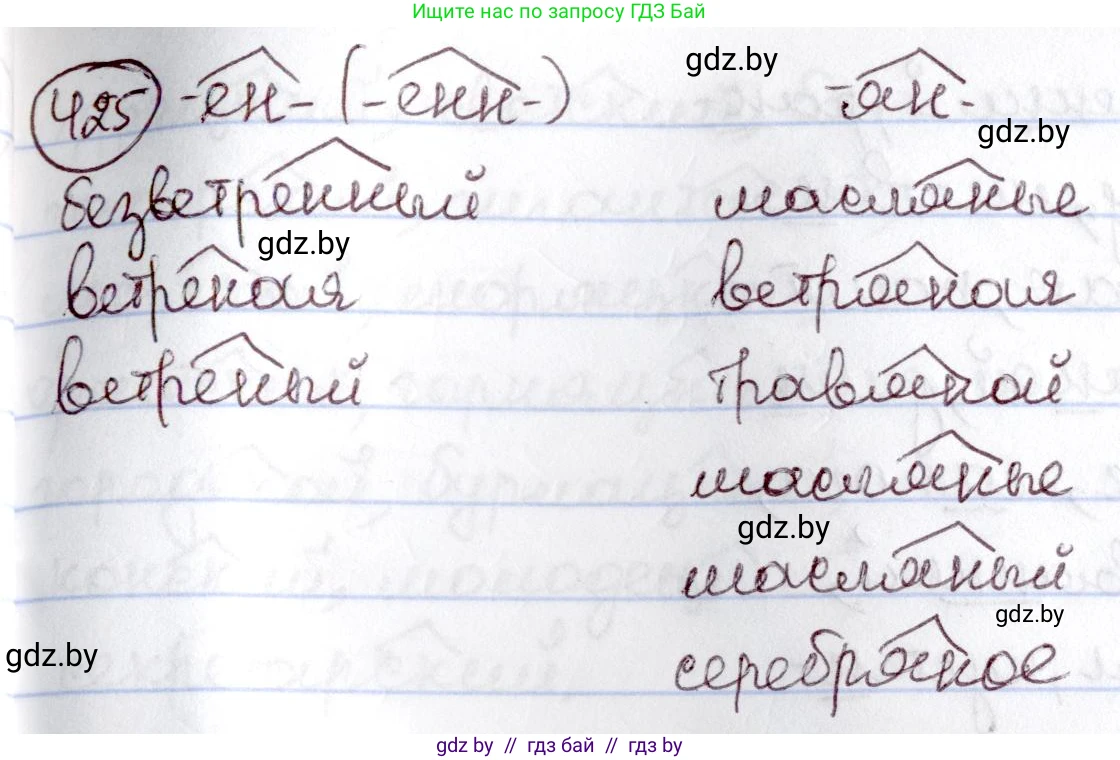 Ищите нас по запросу ГДЗ Бай
425 -ен- (-енн-) -ян-
gdz.by
gdz.by
безветренный масляные
gdz.by
ветреная ветряная
ветреный травяной
масляные
gdz.by
масляный
gdz.by
gdz.by
серебряное
gdz by // гдз бай // гдз by